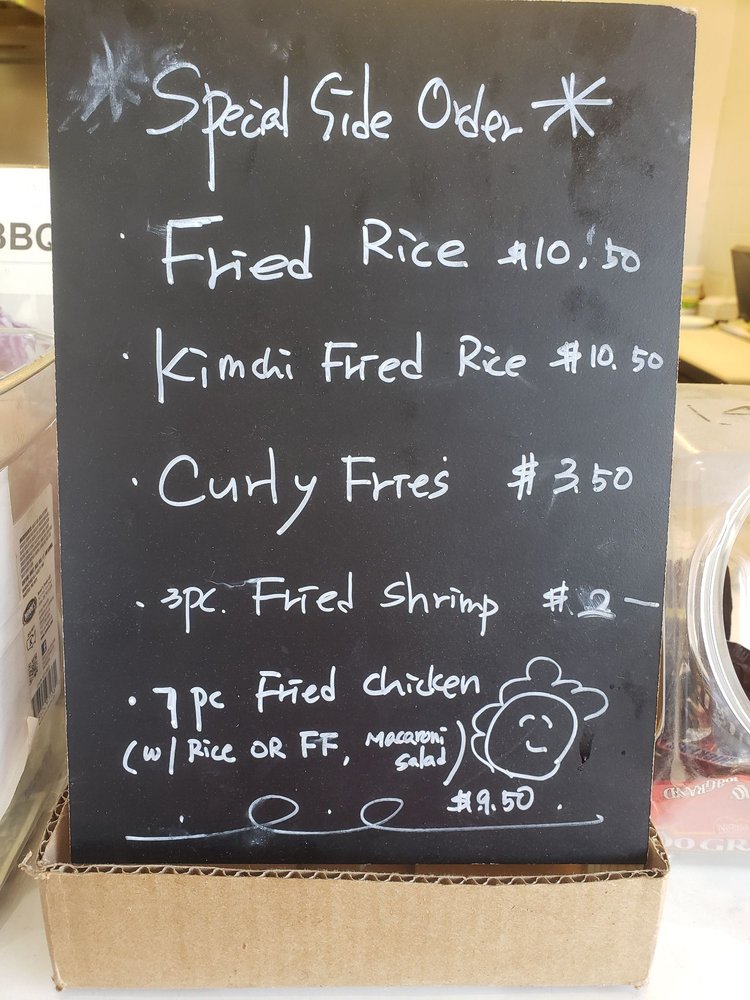 * Special Side Order *
BBQ
· Fried Rice $10.50
· Kimchi Fried Rice $10.50
· Curly Fries $3.50
· 3pc. Fried Shrimp $2—
· 7pc Fried Chicken
(w/ Rice OR FF, Macaroni Salad)
$9.50